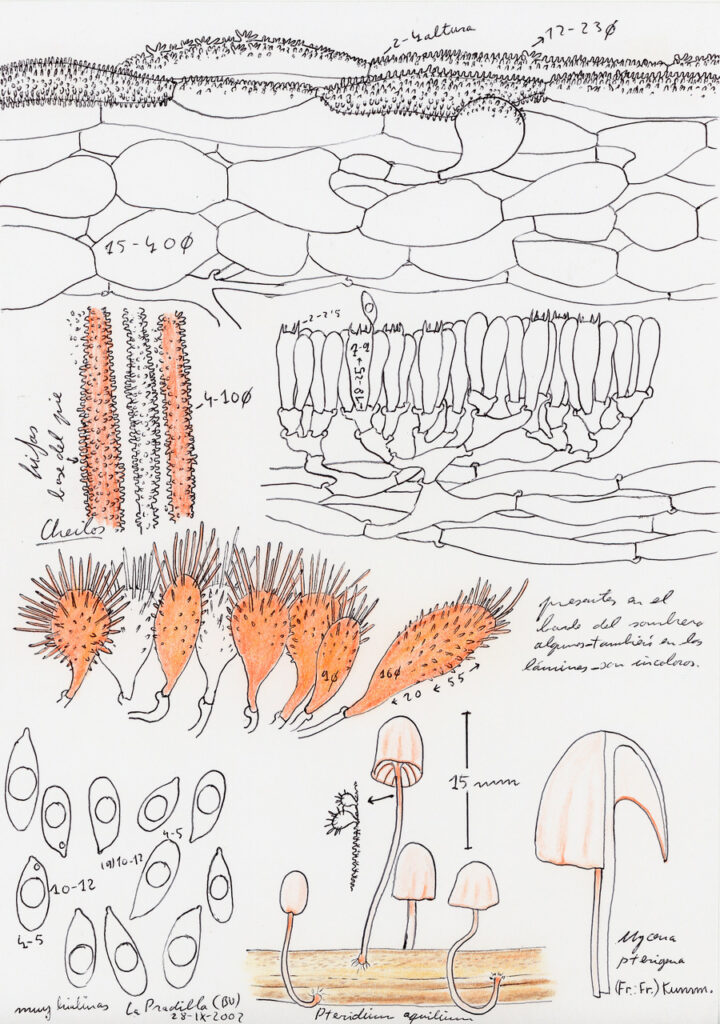 2-4 altura
12-23 ø
15-40 ø
2-2,5
18-25 × 7-9
4-10 ø
hifas
base del pie
Cheilos
presentes en el
borde del sombrero
algunos también en las
láminas - son incoloros.
9 ø
16 ø
20
55
15 mm
4-5
(9) 10-12
10-12
4-5
Mycena
pterigena
(Fr.: Fr.) Kumm.
muy hialinas
La Pradilla (BU)
28-IX-2002
Pteridium aquilinum